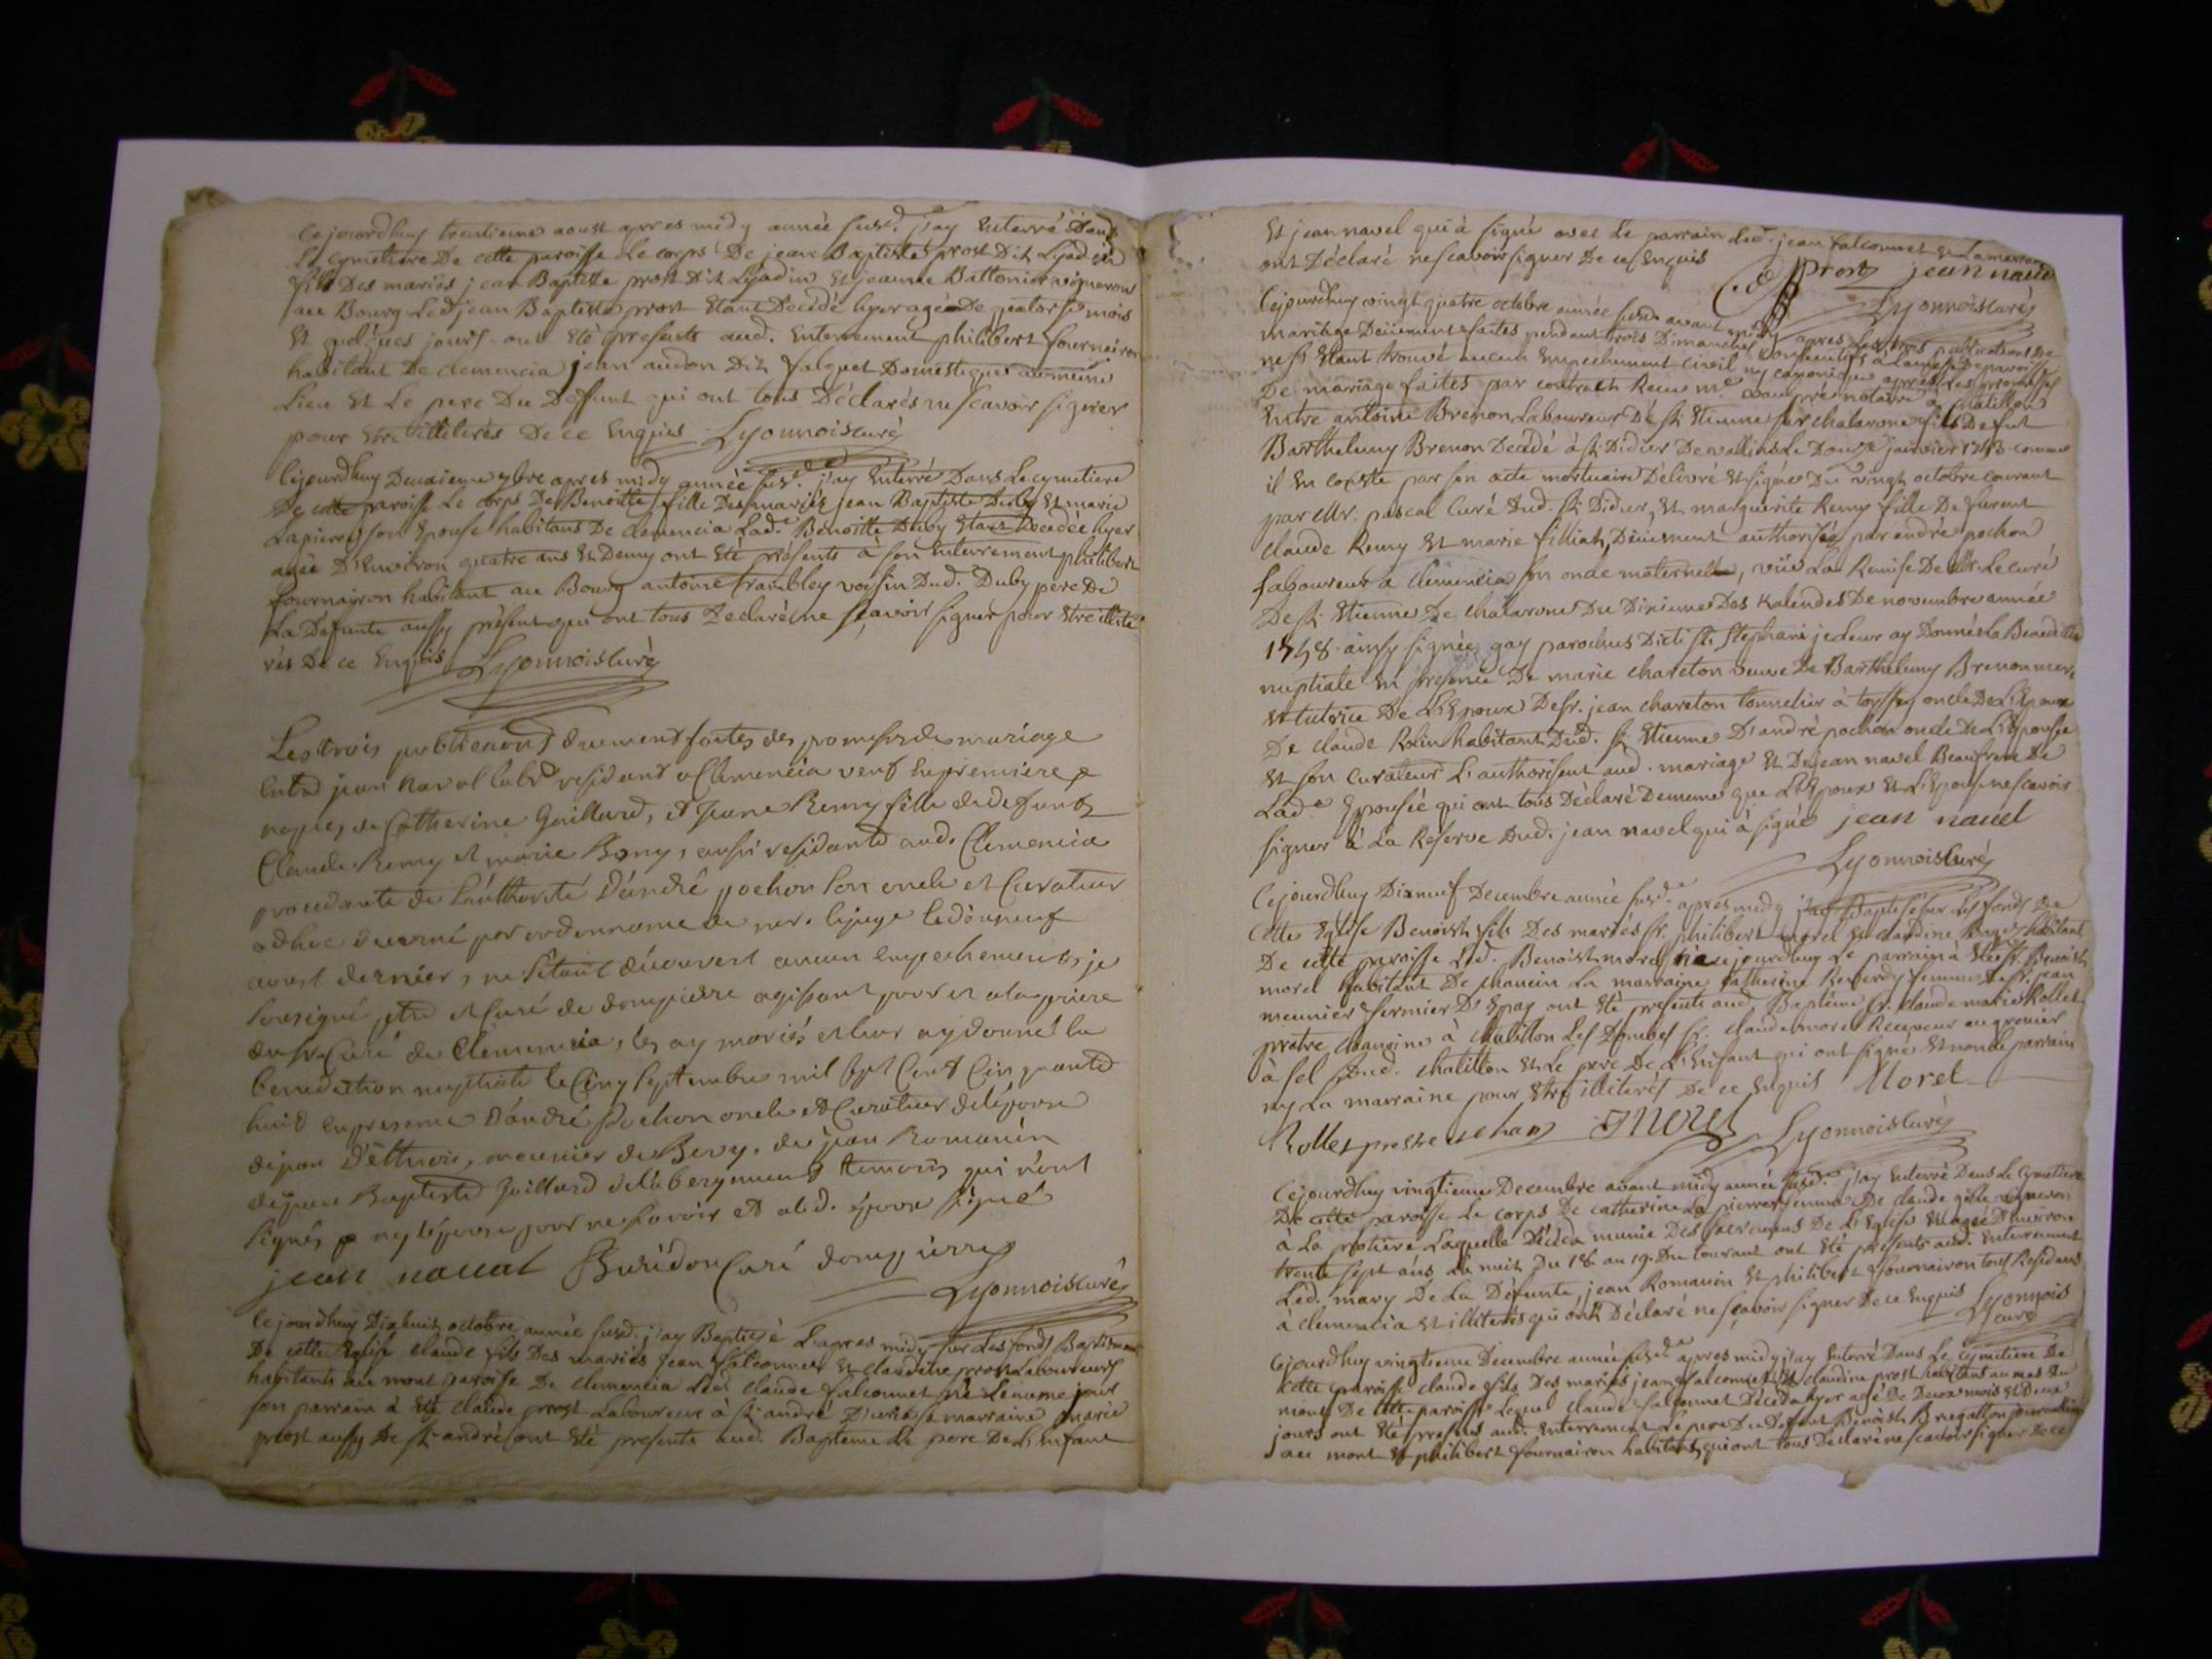 Cejourdhuy trentieme aoust apres midy année susd. j'ay Enterré Dans
Le cymetiere De cette paroisse Le corps De jean Baptiste prost Dit Lyadin
fils Des mariés jean Baptiste prost Dit Lyadin Et jeanne Battonier vignerons
au Bourg Led. jean Baptiste prost Etant Decédé hyer agé De quatorse mois
Et quelques jours. ont Eté presents aud. Enterrement philibert fournairon
habitant De clemencia jean audon Dit falquet Domestique au meme
Lieu Et Le pere Du Deffunt qui ont tous Déclarés ne scavoir signer
pour Etre illiterés De ce Enquis Lyonnois curé
Cejourdhuy Deuxieme 7bre apres midy année susd. j'ay Enterré Dans Le cymetiere
De cette paroisse Le corps De Benoitte fille Des mariés jean Baptiste Duby Et marie
Lapierre son Epouse habitans De clemencia Lad. Benoitte Duby Etant Decedée hyer
agée D'Environ quatre ans Et Demy ont Eté présents à son Enterrement philibert
fournairon habitant au Bourg antoine trambley voisin Dud. Duby pere De
La Defunte aussy présent qui ont tous Declaré ne sçavoir signer pour Etre illité
rés De ce Enquis Lyonnois curé
Les trois publications duement faites des promesses de mariage
Entre jean Navel labr resident a Clemencia veuf En premiere
nopces de Catherine Guillard, et Jeane Remy fille de defunts
Claude Remy et marie Bony, aussi residante aud. Clemencia
procedante de L'authorité D'andré pochon son oncle et Curateur
adhoc decerné par ordonnance de mr. le juge le dixneuf
aoust dernier, ne s'étant découvert aucun Empechement, je
soussigné ptre et Curé de dompierre agissant pour et a la priere
du sr Curé de Clemencia, les ay mariés et leur ay donné la
benediction nuptiale le Cinq Septembre mil sept Cent Cinquante
huit En presence D'andré Pochon oncle et Curateur de lépouse
de jean meunier de Bevy, de jean Romanin
de jean Baptiste Guillard de l'abergement temoins qui n'ont
signés ny lépouse pour ne savoir et a led. époux signé
jean naval Buridon Curé dompierre
Lyonnois curé
Cejourdhuy Dixhuit octobre année susd. j'ay Baptisé L'apres midy sur Les fonds Baptismaux
De cette Eglise claude fils Des mariés jean falconnet Et claudine prost Laboureurs
habitants au mont paroisse De clemencia Led. claude falconnet né Le meme jour
son parrain à Eté claude prost Laboureur à st andré sa marraine marie
prost aussy De st andré ont Eté presents aud. Bapteme Le pere De L'Enfant
Et jean navel qui à signé avec Le parrain Led. jean falconnet Et La marraine
ont Déclaré ne scavoir signer De ce Enquis C. prost jean navel
Lyonnois curé
Cejourdhuy vingt quatre octobre année susd. avant midy apres Les trois publications De
mariage Deüement faites pendant trois Dimanches consecutifs à La messe De paroisse
ne s'y Etant trouvé aucun Empechement civil ny canonique apres Les promesses
De mariage faites par contract Recu me notaire à chatillon
Entre antoine Brenon Laboureur De st Etienne sur chalarone fils De fut
Barthelemy Brenon Decédé à st Didier De vallins Le Douze janvier 1743 comme
il En conste par son acte mortuaire Délivré Et signé Du vingt octobre courant
par Mr. pascal Curé Dud. st Didier, Et marguerite Remy fille De furent
claude Remy Et marie filliat, Düement authorisée par andré pochon
Laboureur à clemencia son oncle maternel, vüe La Remise De Mr. Le curé
De st Etienne De chalarone Du Dixieme Des Kalendes De novembre année
1758. ainsy signée gay parochus Dicti sti. Stephani je Leur ay Donné La Benedictn
nuptiale En presence De marie chareton veuve De Barthelemy Brenon mere
Et tutrice De L'Epoux De sr. jean chareton tonnelier à toissey oncle De L'Epoux
De claude Rolin habitant Dud. st Etienne D'andré pochon oncle De L'Epouse
Et son curateur L'authorisent aud. mariage Et De jean navel Beaufrere De
Lad. Epousée qui ont tous Déclaré De meme que L'Epoux Et L'Epouse ne scavoir
signer à La Reserve Dud. jean navel qui à signé jean navel
Lyonnois curé
Cejourdhuy Dixneuf Decembre année susd. apres midy j'ay Baptisé sur Les fonds De
cette Eglise Benoist fils Des mariés sr. philibert morel Et claudine habitants
De cette paroisse Led. Benoist morel né cejourdhuy Le parrain à Eté sr. Benoist
morel habitant De chanein La marraine Catherine Reverdy femme De sr. jean
meunier fermier D'Epay ont Eté presents aud. Baptême sr. claude marie Rollet
pretre chanoine à chatillon Les Dombes sr. claude morel Receveur au grenier
à sel Dud. chatillon Et Le pere De L'Enfant qui ont signé Et non Le parrain
ny La marraine pour Etre illiterés De ce Enquis Morel
Rollet prestre chan Morel Lyonnois curé
Cejourdhuy vingtieme Decembre avant midy année susd. j'ay Enterré Dans Le cymetiere
De cette paroisse Le corps De catherine La pierre femme De claude vigneron
à La Laquelle Décéda munie Des sacremens De L'Eglise Et agée D'Environ
trente sept ans La nuit Du 18 au 19. Du courant ont Eté présents aud. Enterrement
Led. mary De La Défunte, jean Romanin Et philibert fournairon tous Residans
à clemencia Et illiterés qui ont Déclaré ne sçavoir signer De ce Enquis Lyonnois
curé
Cejourdhuy vingtieme Decembre année susd. apres midy j'ay Enterré Dans Le cymetiere De
cette paroisse claude fils Des mariés jean falconnet Et claudine prost habitans au mas Du
mont De cette paroisse Lequel claude falconnet Décéda hyer agé De Deux mois Et Deux
jours ont Eté presens aud. Enterrement Le pere Du Defunt Benoist journalier
au mont Et philibert fournairon habitant, qui ont tous Declaré ne scavoir signer De ce